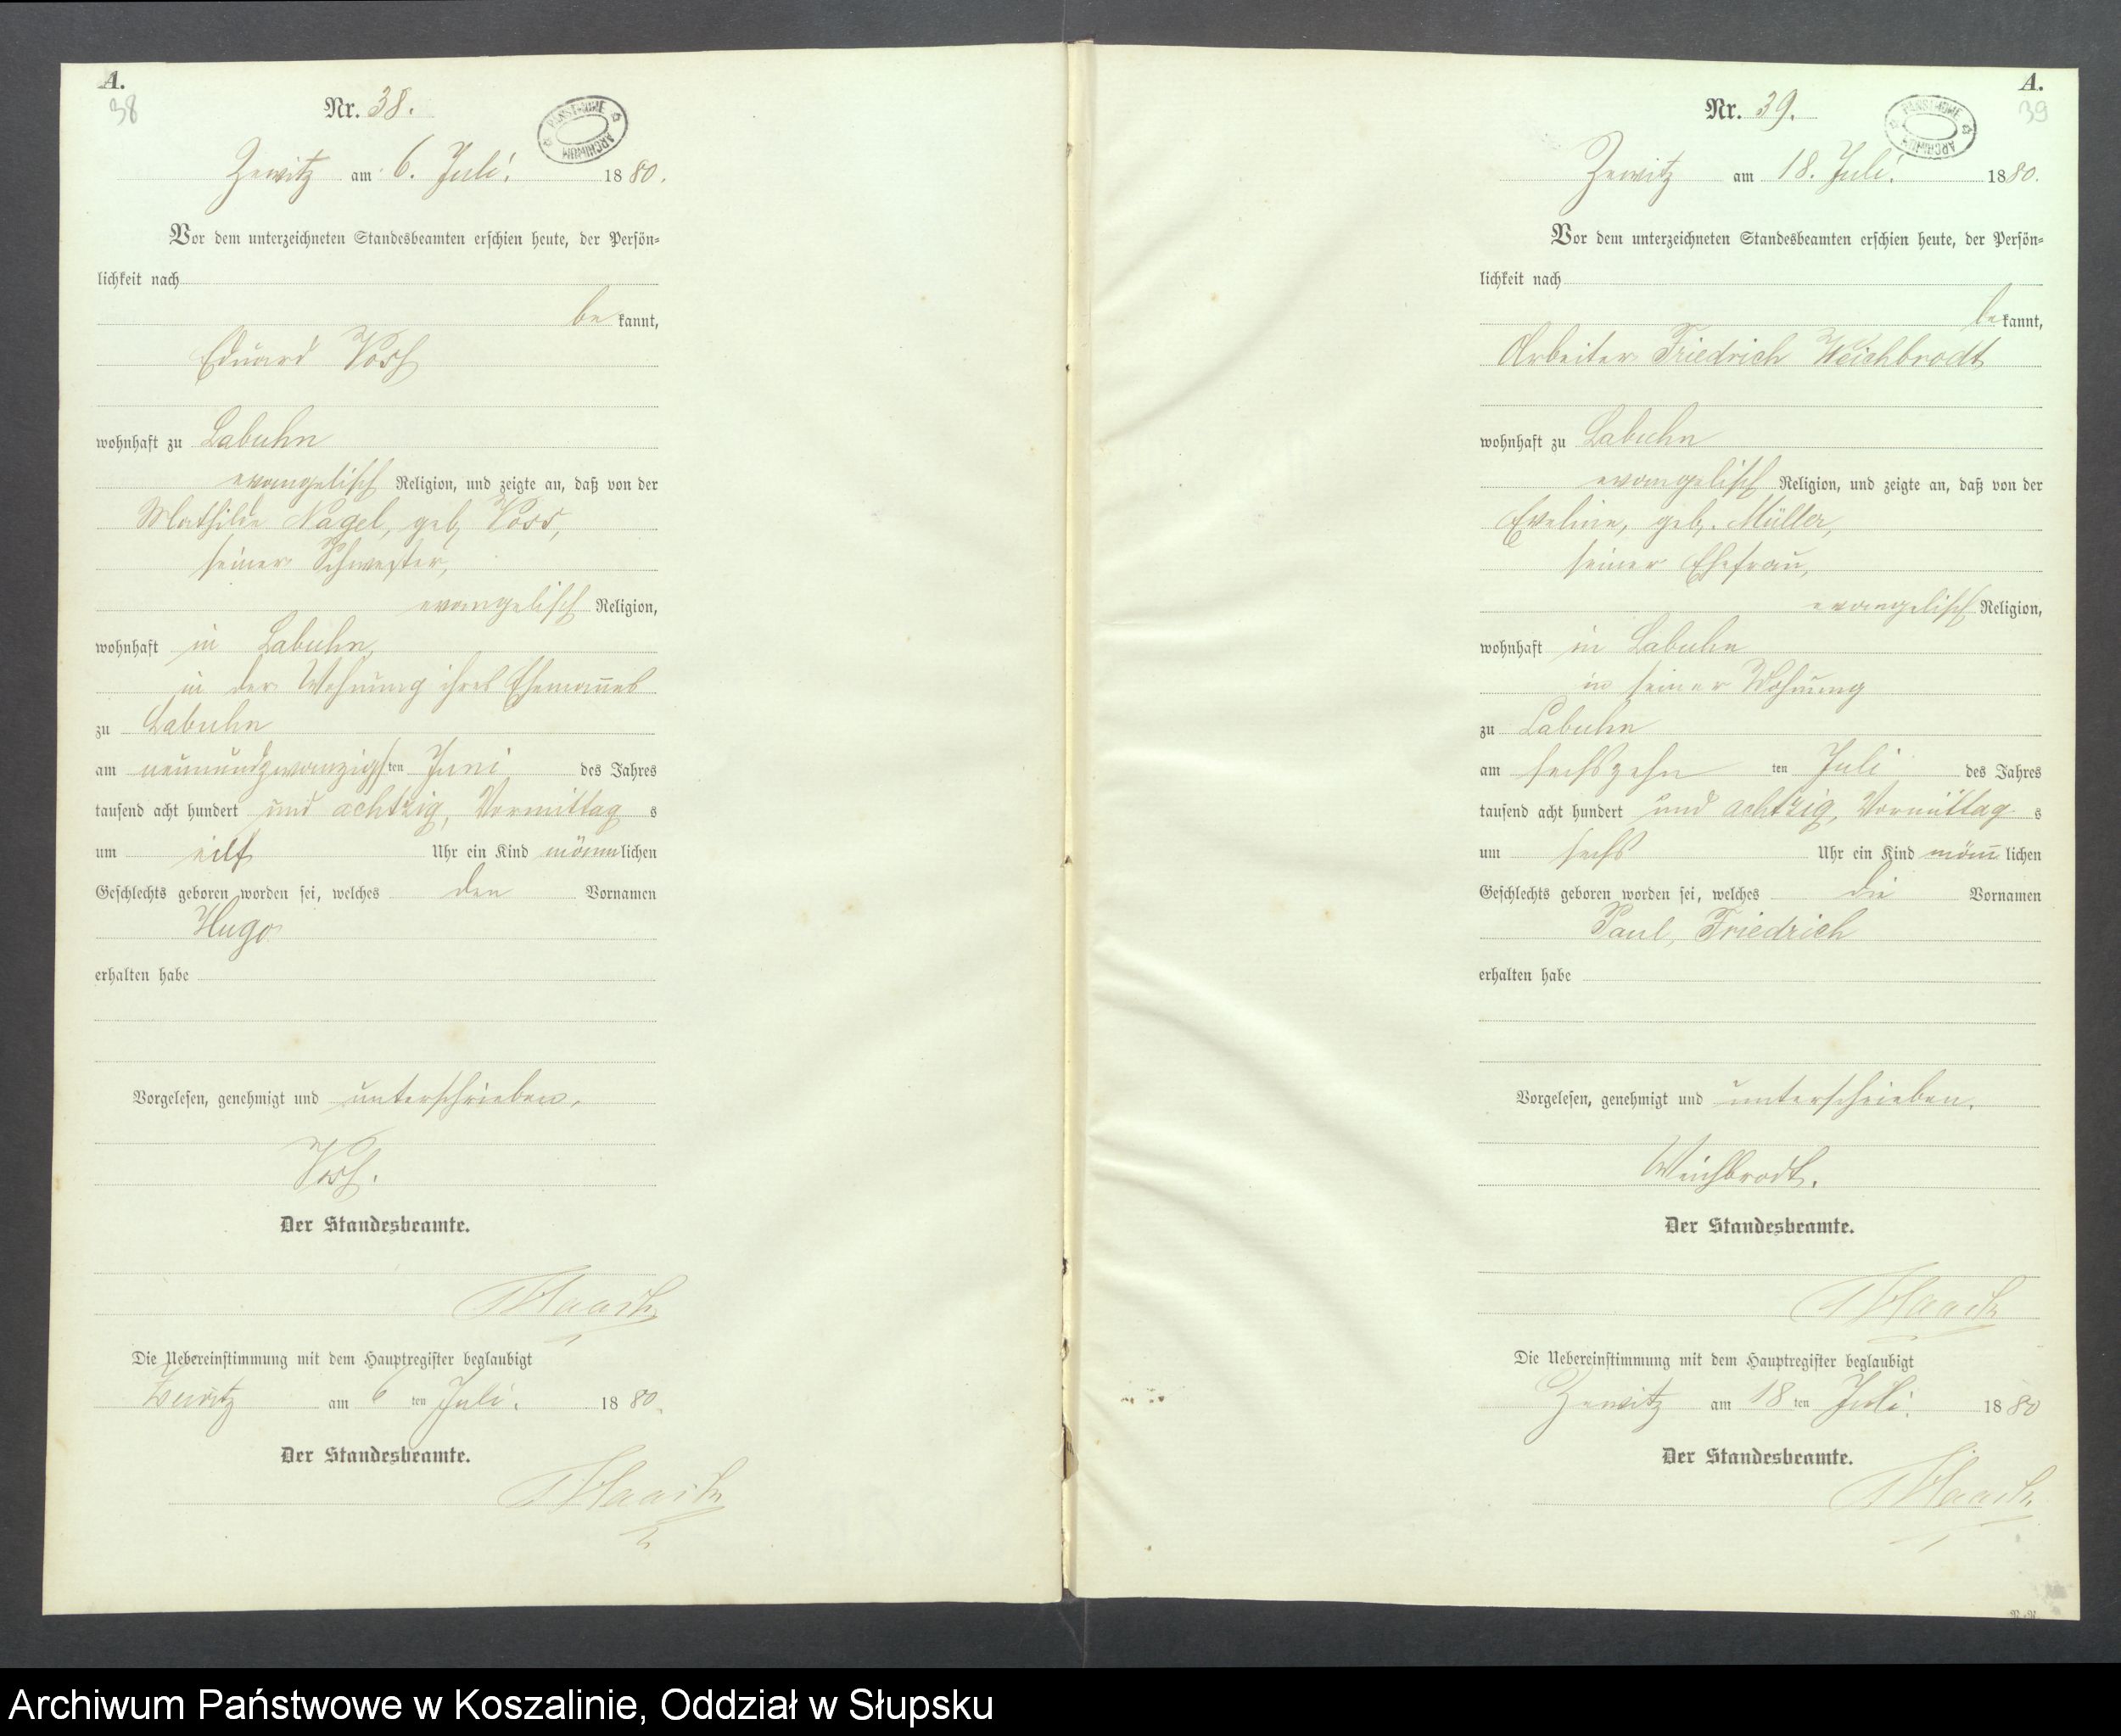 A.
38
Nr. 38.
PAŃSTWOWE ARCHIWUM
Zewitz am 6. Juli 1880.
Vor dem unterzeichneten Standesbeamten erschien heute, der Persön-
lichkeit nach
be kannt,
Eduard Voß
wohnhaft zu Labuhn
evangelisch Religion, und zeigte an, daß von der
Mathilde Nagel, geb. Voss,
seiner Schwester,
evangelisch Religion,
wohnhaft in Labuhn,
in der Wohnung ihres Ehemannes
zu Labuhn
am neunundzwanzigsten Juni des Jahres
tausend acht hundert und achtzig, Vormittag s
um eilf Uhr ein Kind männlichen
Geschlechts geboren worden sei, welches den Vornamen
Hugo
erhalten habe
Vorgelesen, genehmigt und unterschrieben.
Voß.
Der Standesbeamte.
Die Uebereinstimmung mit dem Hauptregister beglaubigt
Zewitz am 6 ten Juli. 1880.
Der Standesbeamte.
A.
39
Nr. 39.
PAŃSTWOWE ARCHIWUM
Zewitz am 18. Juli. 1880.
Vor dem unterzeichneten Standesbeamten erschien heute, der Persön-
lichkeit nach
be kannt,
Arbeiter Friedrich Weichbrodt
wohnhaft zu Labuhn
evangelisch Religion, und zeigte an, daß von der
Eveline, geb. Müller,
seiner Ehefrau,
evangelisch Religion,
wohnhaft in Labuhn
in seiner Wohnung
zu Labuhn
am sechszehn ten Juli des Jahres
tausend acht hundert und achtzig, Vormittag s
um sechs Uhr ein Kind männlichen
Geschlechts geboren worden sei, welches die Vornamen
Paul, Friedrich
erhalten habe
Vorgelesen, genehmigt und unterschrieben.
Weichbrodt.
Der Standesbeamte.
Die Uebereinstimmung mit dem Hauptregister beglaubigt
Zewitz am 18 ten Juli. 1880
Der Standesbeamte.
Archiwum Państwowe w Koszalinie, Oddział w Słupsku